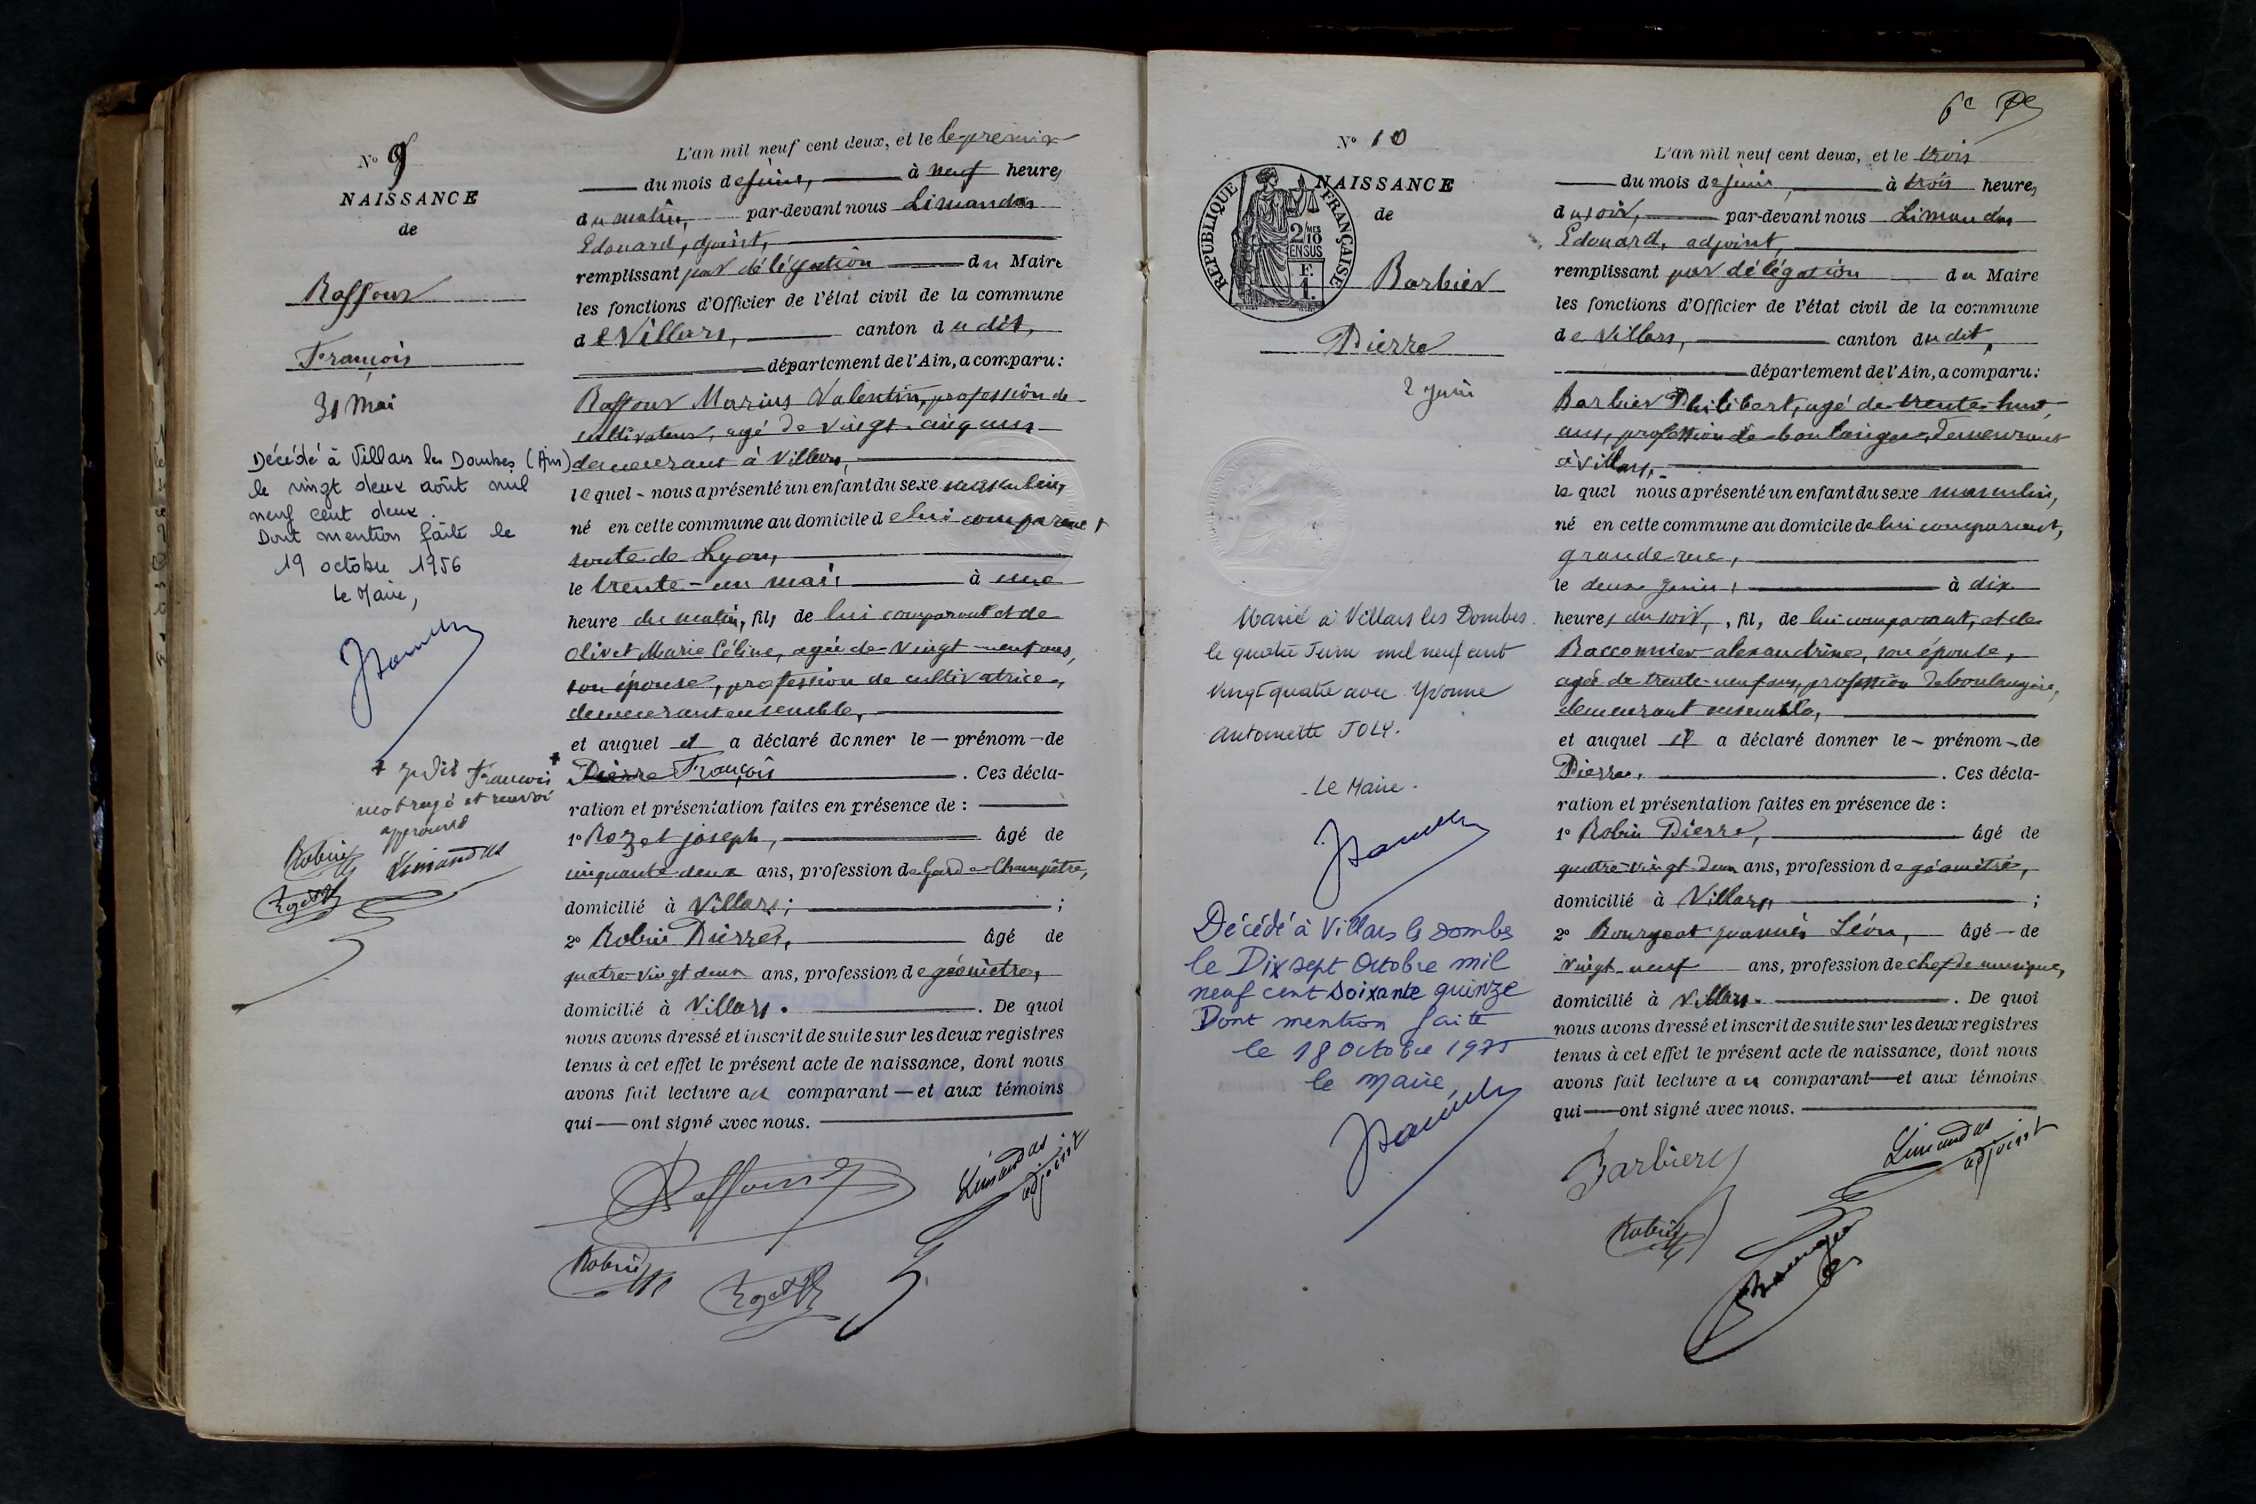 N° 9
NAISSANCE
de
Raffour
François
31 Mai
Décédé à Villars les Dombes (Ain)
le vingt deux août mil
neuf cent deux.
Dont mention faite le
19 octobre 1956
Le Maire,
+ François
mot rayé et renvoi
approuvé
Robin
Limandas
Rozet
L'an mil neuf cent deux, et le le premier
du mois de juin, à neuf heures
du matin, par-devant nous Limandas
Edouard, adjoint,
remplissant par délégation du Maire
les fonctions d'Officier de l'état civil de la commune
de Villars, canton du dit,
département de l'Ain, a comparu:
Raffour Marius Valentin, profession de
cultivateur, agé de vingt-cinq ans
demeurant à Villars,
lequel - nous a présenté un enfant du sexe masculin,
né en cette commune au domicile de lui comparant,
route de Lyon,
le trente-un mai, à une
heure du matin, fils de lui comparant et de
Olivet Marie Céline, agée de vingt-neuf ans,
son épouse, profession de cultivatrice,
demeurant ensemble,
et auquel il a déclaré donner le - prénom - de
Pierre François + . Ces décla-
ration et présentation faites en présence de :
1° Rozet joseph, âgé de
cinquante-deux ans, profession de Garde-Champêtre,
domicilié à Villars; ;
2° Robin Pierre, âgé de
quatre-vingt deux ans, profession de géomètre,
domicilié à Villars. . De quoi
nous avons dressé et inscrit de suite sur les deux registres
tenus à cet effet le présent acte de naissance, dont nous
avons fait lecture au comparant — et aux témoins
qui — ont signé avec nous.
Raffour
Limandas
adjoint
Robin
Rozet
6e
N° 10
NAISSANCE
de
REPUBLIQUE FRANÇAISE
2/10 MES
EN SUS
F.
1.
Barbier
Pierre
2 Juin
Marié à Villars les Dombes
le quatre Juin mil neuf cent
vingt quatre avec Yvonne
Antoinette JOLY.
- Le Maire -
Décédé à Villars les Dombes
le Dix sept Octobre mil
neuf cent soixante quinze
Dont mention faite
le 18 octobre 1975
le Maire,
L'an mil neuf cent deux, et le trois
du mois de juin, à trois heures
du soir, par-devant nous Limandas
Edouard, adjoint,
remplissant par délégation du Maire
les fonctions d'Officier de l'état civil de la commune
de Villars, canton du dit,
département de l'Ain, a comparu:
Barbier Philibert, agé de trente-huit
ans, profession de boulanger, demeurant
à Villars,
lequel nous a présenté un enfant du sexe masculin,
né en cette commune au domicile de lui comparant,
grande rue,
le deux Juin, à dix
heures du soir, fils de lui comparant, et de
Racconnier alexandrine, son épouse,
agée de trente-neuf ans, profession de boulangère,
demeurant ensemble,
et auquel il a déclaré donner le - prénom - de
Pierre. . Ces décla-
ration et présentation faites en présence de :
1° Robin Pierre, âgé de
quatre-vingt-deux ans, profession de géomètre,
domicilié à Villars, ;
2° Bourgeat joannès Léon, âgé - de
vingt-neuf ans, profession de chef de musique,
domicilié à Villars. . De quoi
nous avons dressé et inscrit de suite sur les deux registres
tenus à cet effet le présent acte de naissance, dont nous
avons fait lecture au comparant — et aux témoins
qui — ont signé avec nous.
Barbier
Limandas
adjoint
Robin